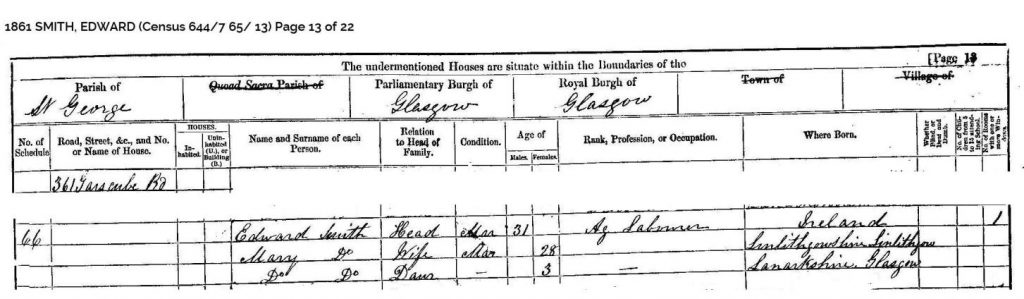 1861 SMITH, EDWARD (Census 644/7 65/ 13) Page 13 of 22
The undermentioned Houses are situate within the Boundaries of the [Page 13
Parish of Quoad Sacra Parish of Parliamentary Burgh of Royal Burgh of Town of Village of
St George Glasgow Glasgow
No. of Schedule Road, Street, &c., and No. or Name of House. HOUSES. Inhabited. Uninhabited (U.), or Building (B.) Name and Surname of each Person. Relation to Head of Family. Condition. Age of Males. Females. Rank, Profession, or Occupation. Where Born. Whether Blind, or Deaf and Dumb.
361 Garscube Rd
66 Edward Smith Head Mar 31 Ag Labourer Ireland 1
Mary Do Wife Mar 28 Linlithgowshire Linlithgow
Do Do Daur — 3 — Lanarkshire Glasgow